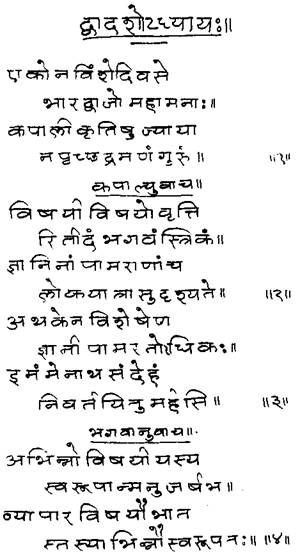 द्वादशोऽध्यायः॥
एकोनविंशे दिवसे
भारद्वाजो महामनाः॥
कपाली कृतिषु ज्याया
नपृच्छद्रमणं गुरुं॥ ॥१॥
कपाल्युवाच॥
विषयी विषयो वृत्ति
रितीदं भगवंस्त्रिकं॥
ज्ञानिनां पामराणां च
लोकयात्रासु दृश्यते॥ ॥२॥
अथ केन विशेषेण
ज्ञानी पामरतोऽधिकः॥
इमं मे नाथ संदेहं
निवर्तयितुमर्हसि॥ ॥३॥
भगवानुवाच॥
अभिन्नो विषयी यस्य
स्वरूपान्मनुजर्षभ॥
व्यापारविषयौ भात
स्तस्याभिन्नौ स्वरूपतः॥ ॥४॥